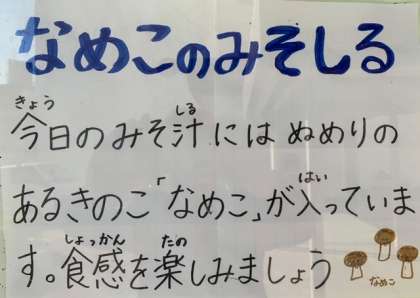 なめこのみそしる
きょう しる
今日のみそ汁にはぬめりの
はい
あるきのこ「なめこ」が入っていま
しょっかん たの
す。食感を楽しみましょう
なめこ